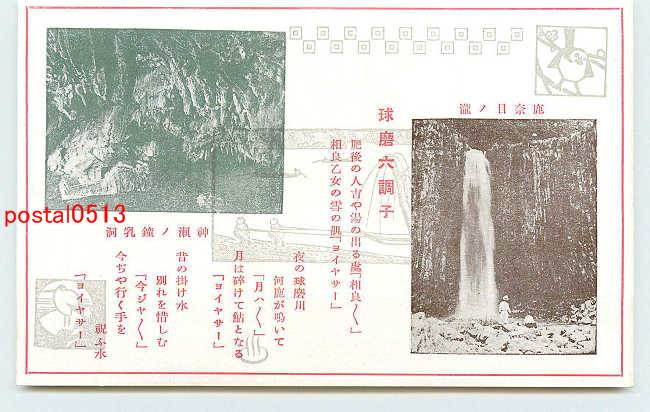 鹿奈目ノ瀧
球磨六調子
肥後の人吉や湯の出る處「相良〱」
相良乙女の雪の肌「ヨイヤサー」
夜の球磨川
河鹿が鳴いて
「月ハ〱」
月は碎けて鮎となる
「ヨイヤサー」
昔の掛け水
別れを惜しむ
「今ジャ〱」
今ぢや行く手を
祝ふ水
「ヨイヤサー」
神瀬ノ鐘乳洞
postal0513